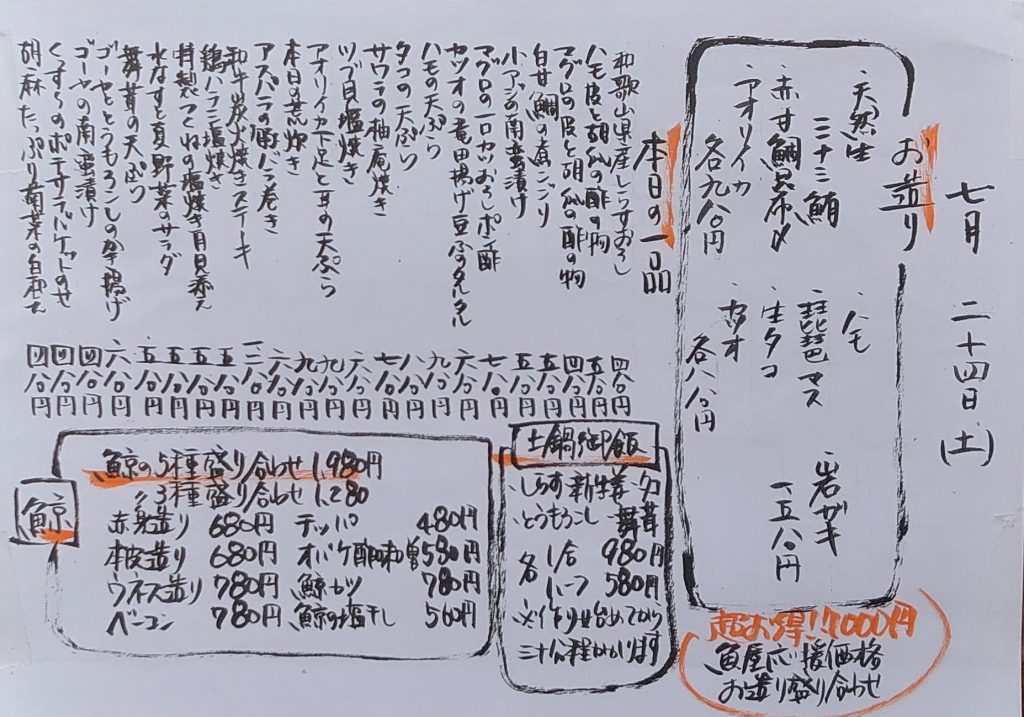 七月 二十四日(土)
お造り
天然生
ミナミ鮪
赤甘鯛昆布〆
アオリイカ
各九八〇円
ハモ
琵琶マス
生タコ
カツオ
各八八〇円
岩ガキ
一五八〇円
超お得!!1000円
魚屋応援価格
お造り盛り合わせ
本日の一品
和歌山県産しらすおろし 四八〇円
ハモ皮と胡瓜の酢の物 五八〇円
マグロの皮と胡瓜の酢の物 四八〇円
白甘鯛の煮こごり 五八〇円
小アジの南蛮漬け 五八〇円
マグロの一口カツおろしポン酢 七八〇円
カツオの竜田揚げ豆ふのタルタル 六八〇円
ハモの天ぷら 九八〇円
タコの天ぷら 八八〇円
サワラの柚庵焼き 七八〇円
ツブ貝塩焼き 六八〇円
アオリイカ下足と耳の天ぷら 九八〇円
本日の煮炊き 九八〇円
アスパラの豚バラ巻き 六八〇円
和牛炭火焼きステーキ
鶏ハラミ塩焼き 五八〇円
特製つくねの塩焼き月見添え 五八〇円
水なすと夏野菜のサラダ 五八〇円
舞茸の天ぷら 五八〇円
ゴーヤととうもろこしのかき揚げ 六八〇円
ゴーヤの南蛮漬け 四八〇円
くんすぅのポテサラバケットのせ 四八〇円
胡麻たっぷり菊菜の白和え 四八〇円
土鍋御飯
しらす新生姜 タコ
とうもろこし 舞茸
各 1合 980円
ハーフ 580円
※作り始めてから
三十分程かかります
鯨
鯨の5種盛り合わせ 1,980円
〃 3種盛り合わせ 1,280
赤身造り 680円 テッパ 480円
本皮造り 680円 オバケ酢味噌 580円
ウネス造り 780円 鯨カツ 780円
ベーコン 780円 鯨の塩干し 560円